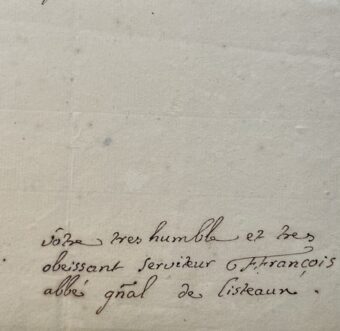 vôtre tres humble et tres
obeissant serviteur FFrançois
abbé gñal de Cisteaux.